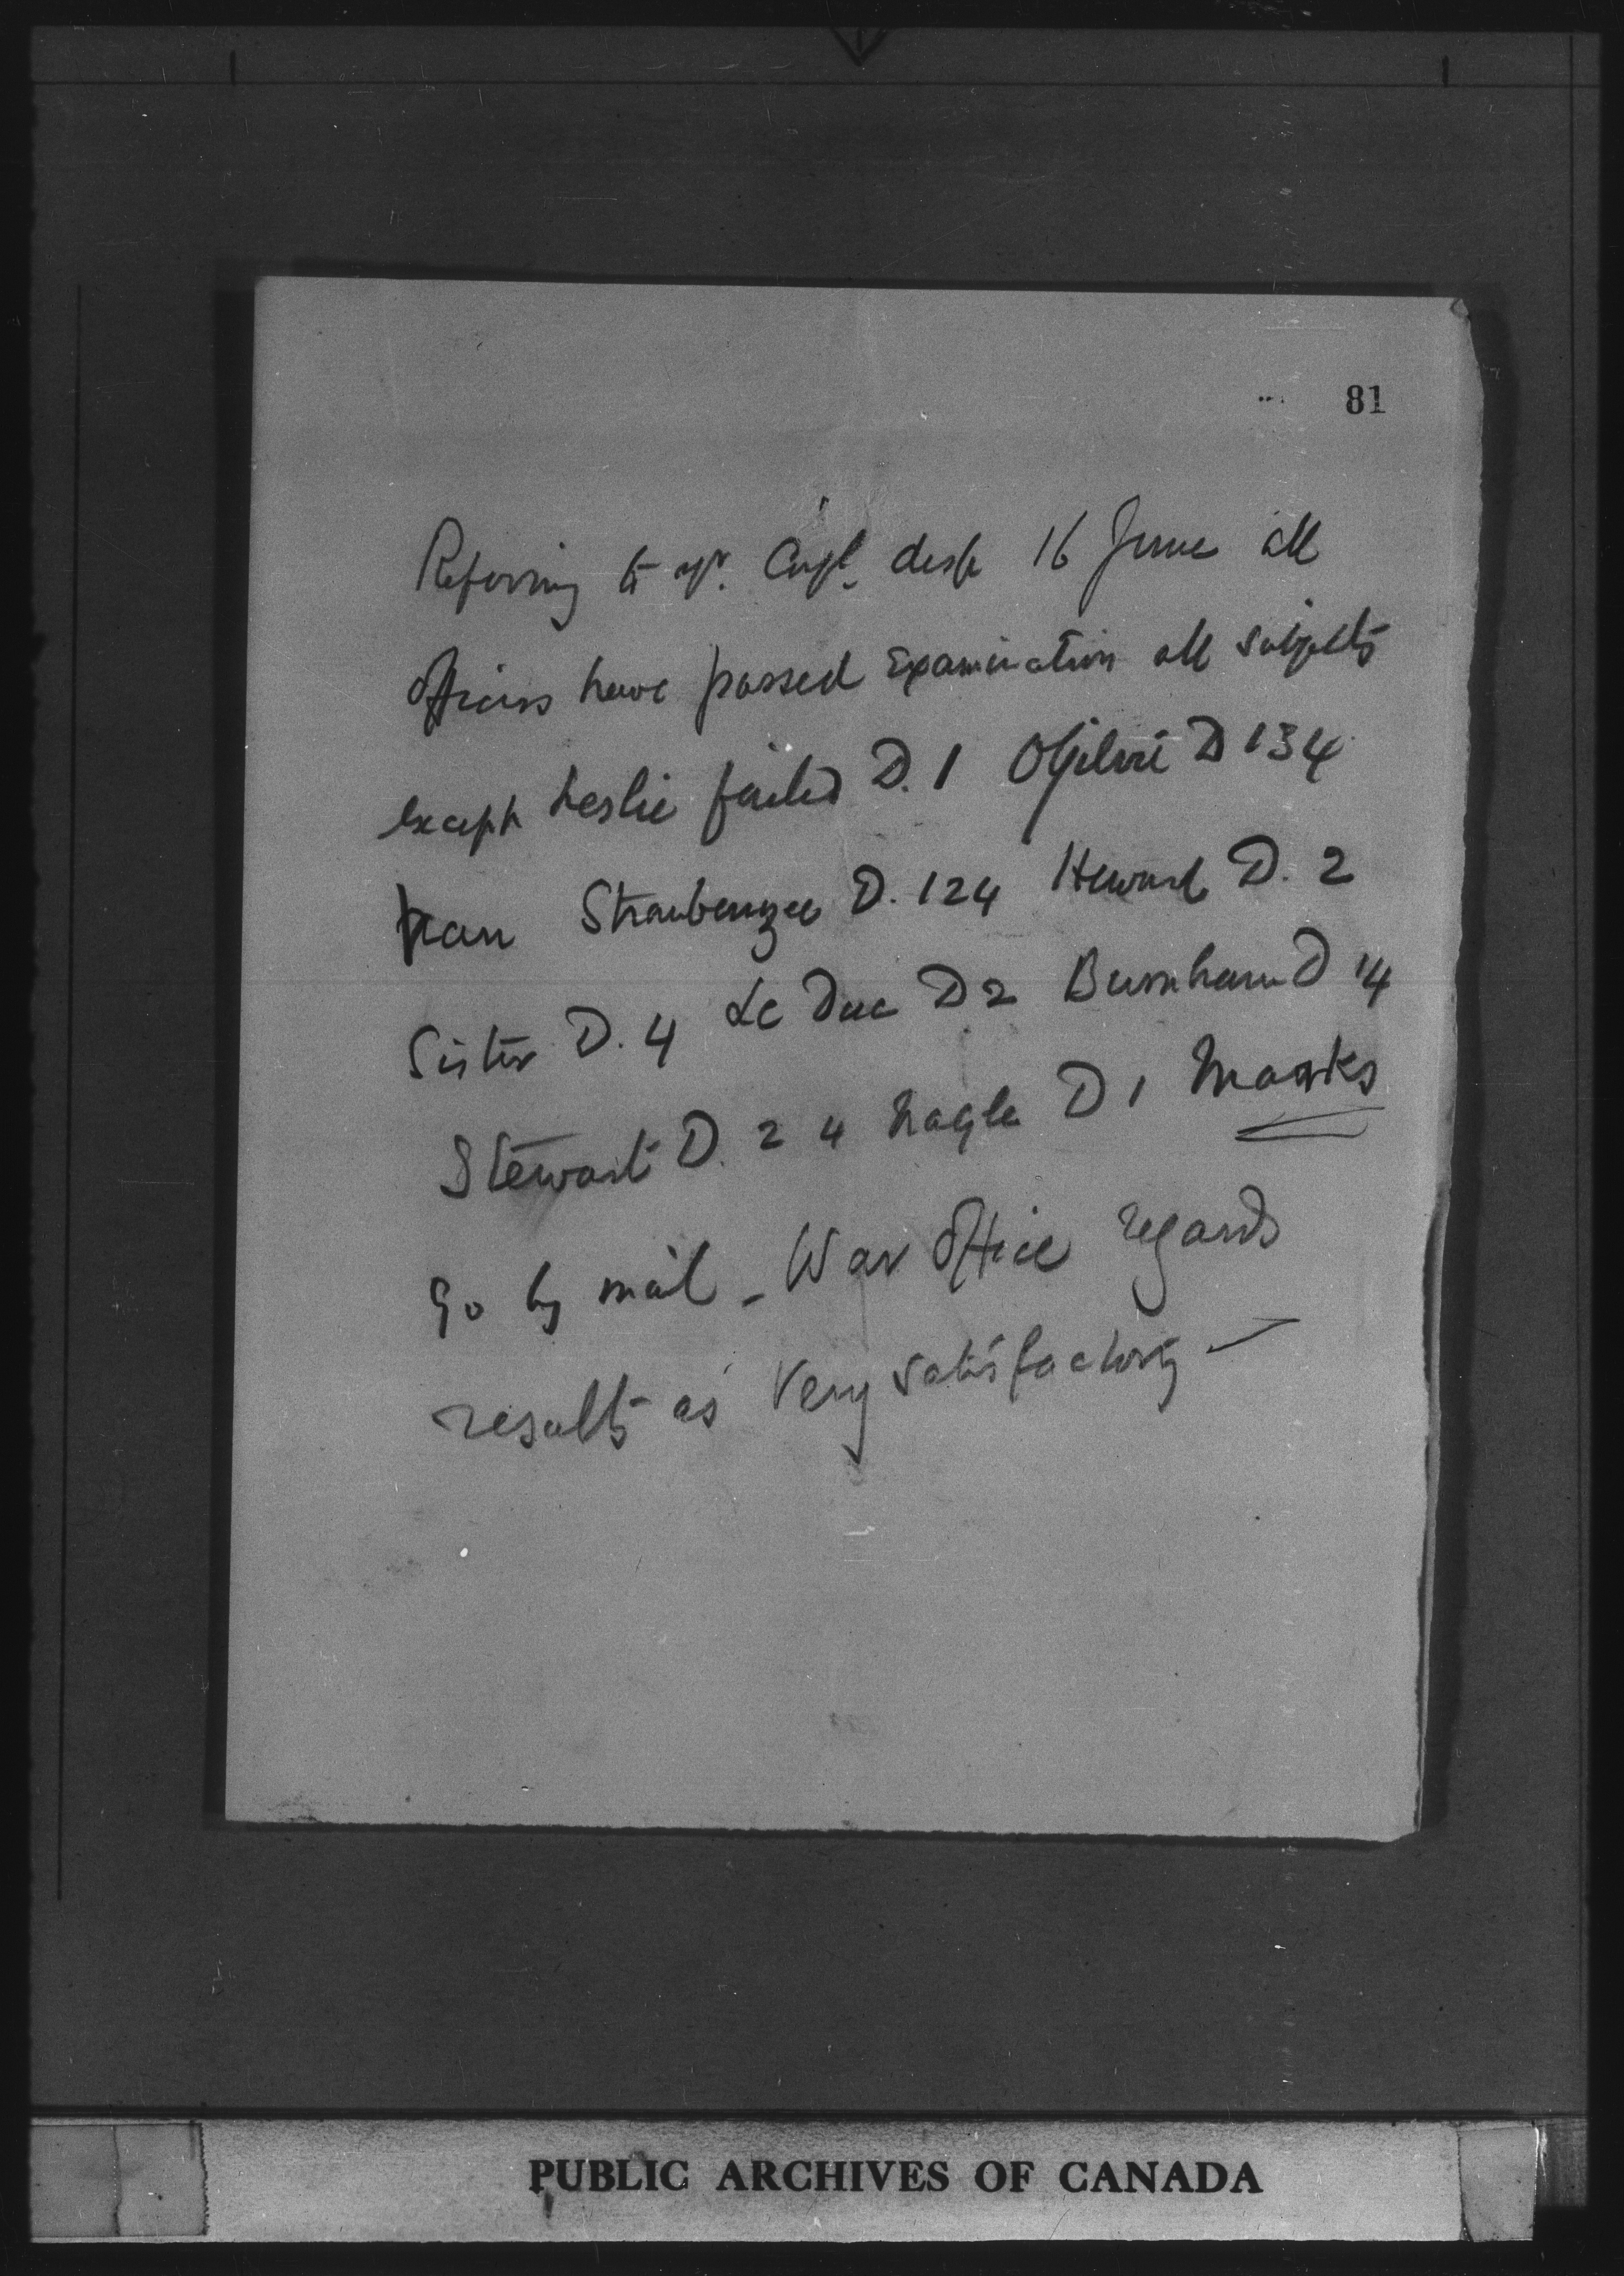 81
Referring to yr. desp 16 June all
Officers have passed Examination all subjects
except Leslie failed D. 1 Ogilvie D 134
Van Straubenzee D. 124 Heward D. 2
Sister D. 4 Le Duc D 2 Burnham D 14
Stewart D. 2 4 Nagle D 1 Marks
go by mail - War Office regards
results as very satisfactory -
PUBLIC ARCHIVES OF CANADA